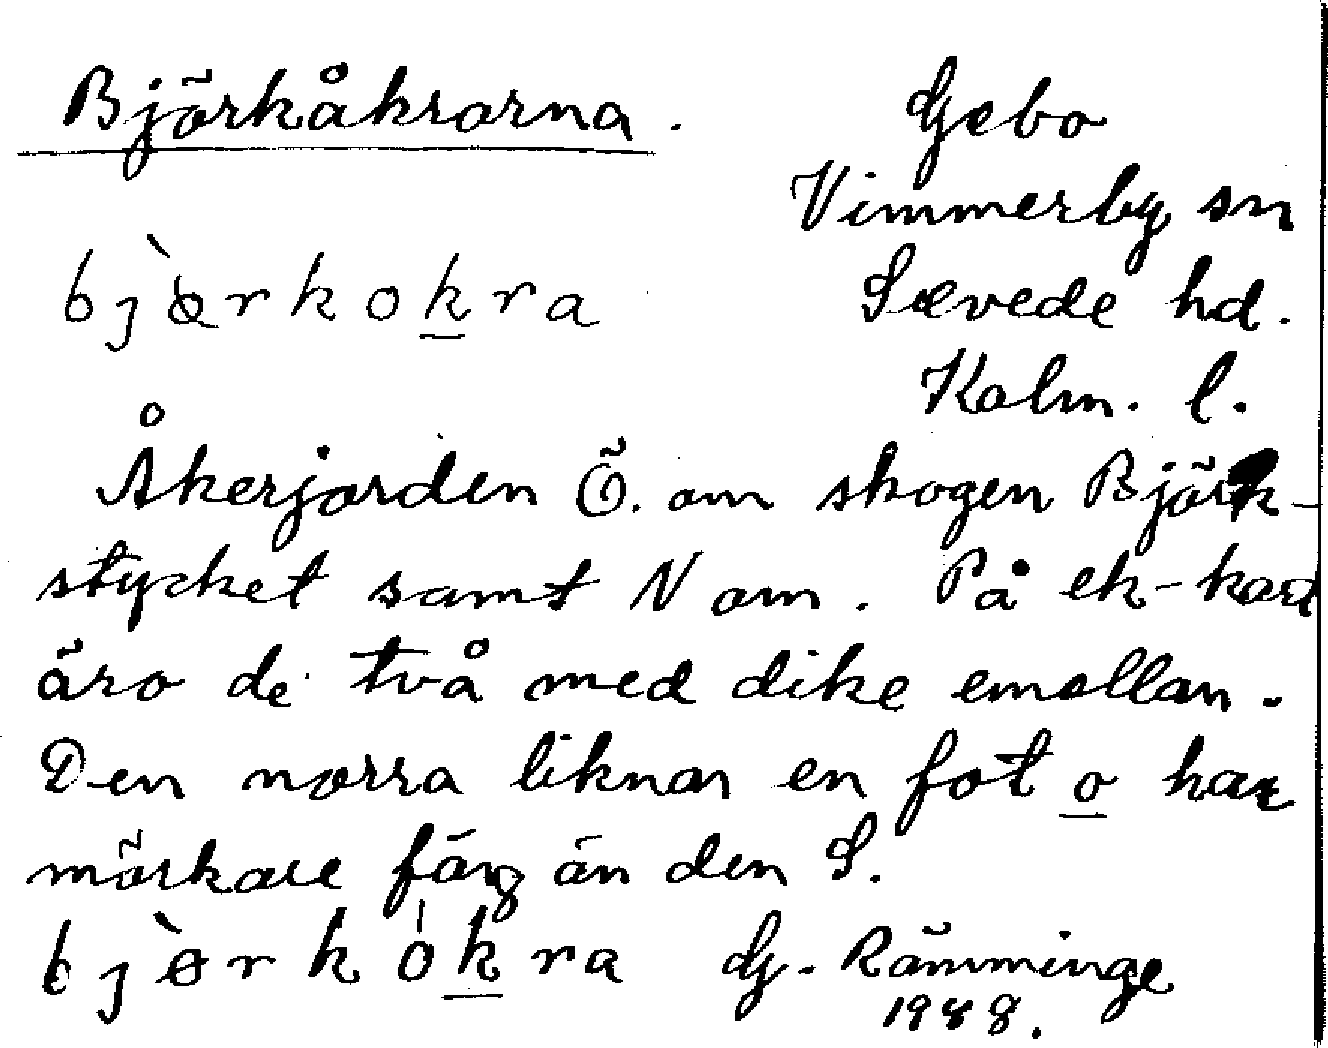 Björkåkrarna. Gebo
Vimmerby sn
bjòrkokra Sevede hd.
Kalm. l.
Åkerjorden Ö. om skogen Björk-
stycket samt N om. På ek-kart
äro de två med dike emellan.
Den norra liknar en fot o har
mörkare färg än den S.
bjòrkókra G. Rämminge
1988.